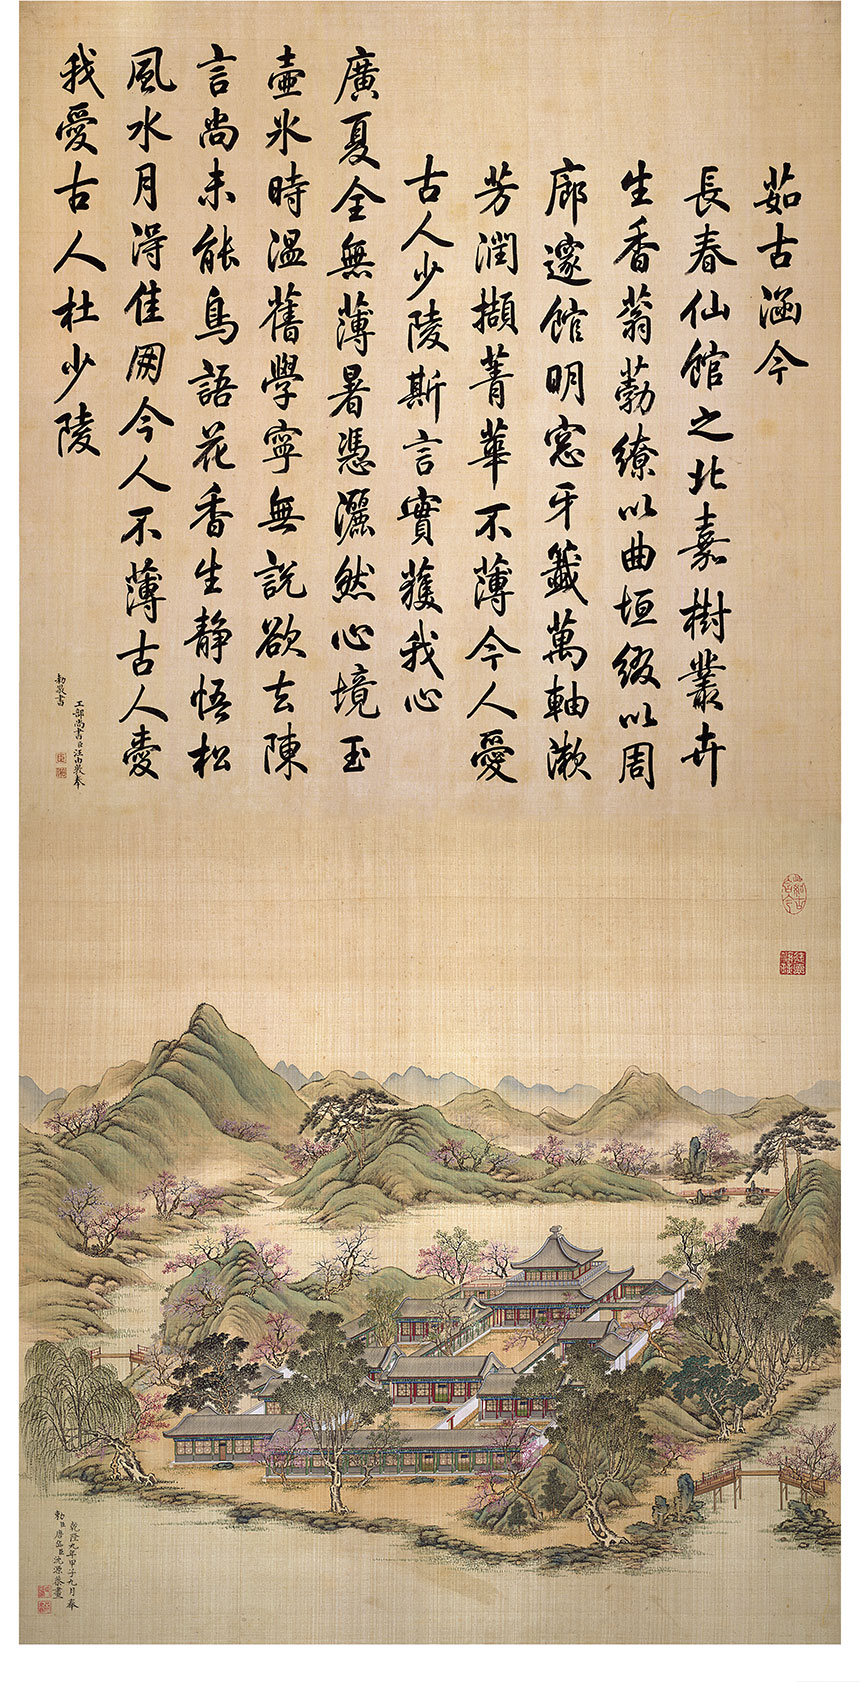 茹古涵今
長春仙館之北嘉樹叢卉
生香蓊葧繚以曲垣綴以周
廊邃館明窓牙籤萬軸漱
芳潤擷菁華不薄今人愛
古人少陵斯言實獲我心
廣夏全無薄暑憑灑然心境玉
壺氷時溫舊學寧無說欲去陳
言尚未能鳥語花香生静悟松
風水月淂佳朋今人不薄古人愛
我愛古人杜少陵
工部尚書臣汪由敦奉
勅敬書
乾隆九年甲子九月奉
勅臣唐岱臣沈源恭畫